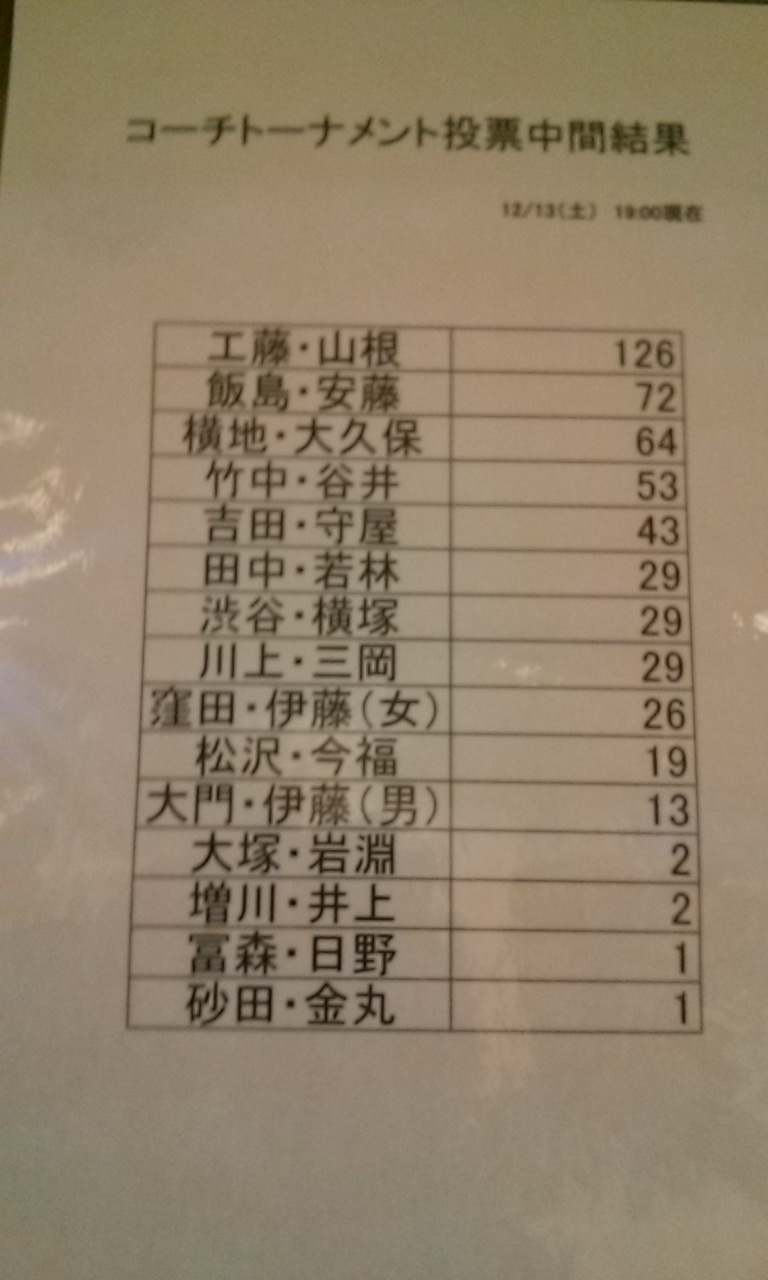 コーチトーナメント投票中間結果
12/13(土) 19:00現在
工藤・山根 126
飯島・安藤 72
横地・大久保 64
竹中・谷井 53
吉田・守屋 43
田中・若林 29
渋谷・横塚 29
川上・三岡 29
窪田・伊藤(女) 26
松沢・今福 19
大門・伊藤(男) 13
大塚・岩淵 2
増川・井上 2
冨森・日野 1
砂田・金丸 1